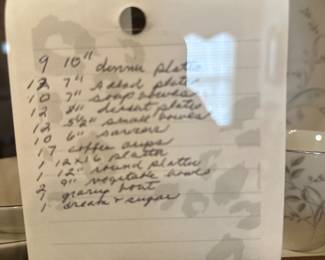 9 10" dinner platte
12 7" salad plates
10 7" soup bowes
12 8" desert plates
12 5½" small bowes
10 6" saucers
17 coffee cups
1 12x16 platter
1 12" round platter
1 9" vegetable bowl
2 gravy boat
1 cream & sugar